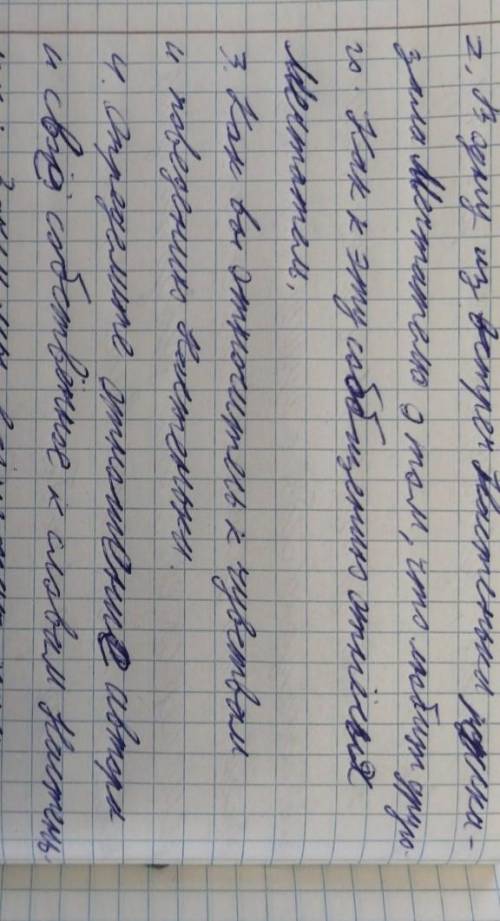 2. В одну из встреч Настенька призна-
зала Мечтателю о том, что любит друго-
го. Как к эту сообщению отнёсся
Мечтатель.
3. Как вы относитесь к чувствам
и поведению Настеньки.
4. Определите отношение автора
и своё собственное к словам Настень-